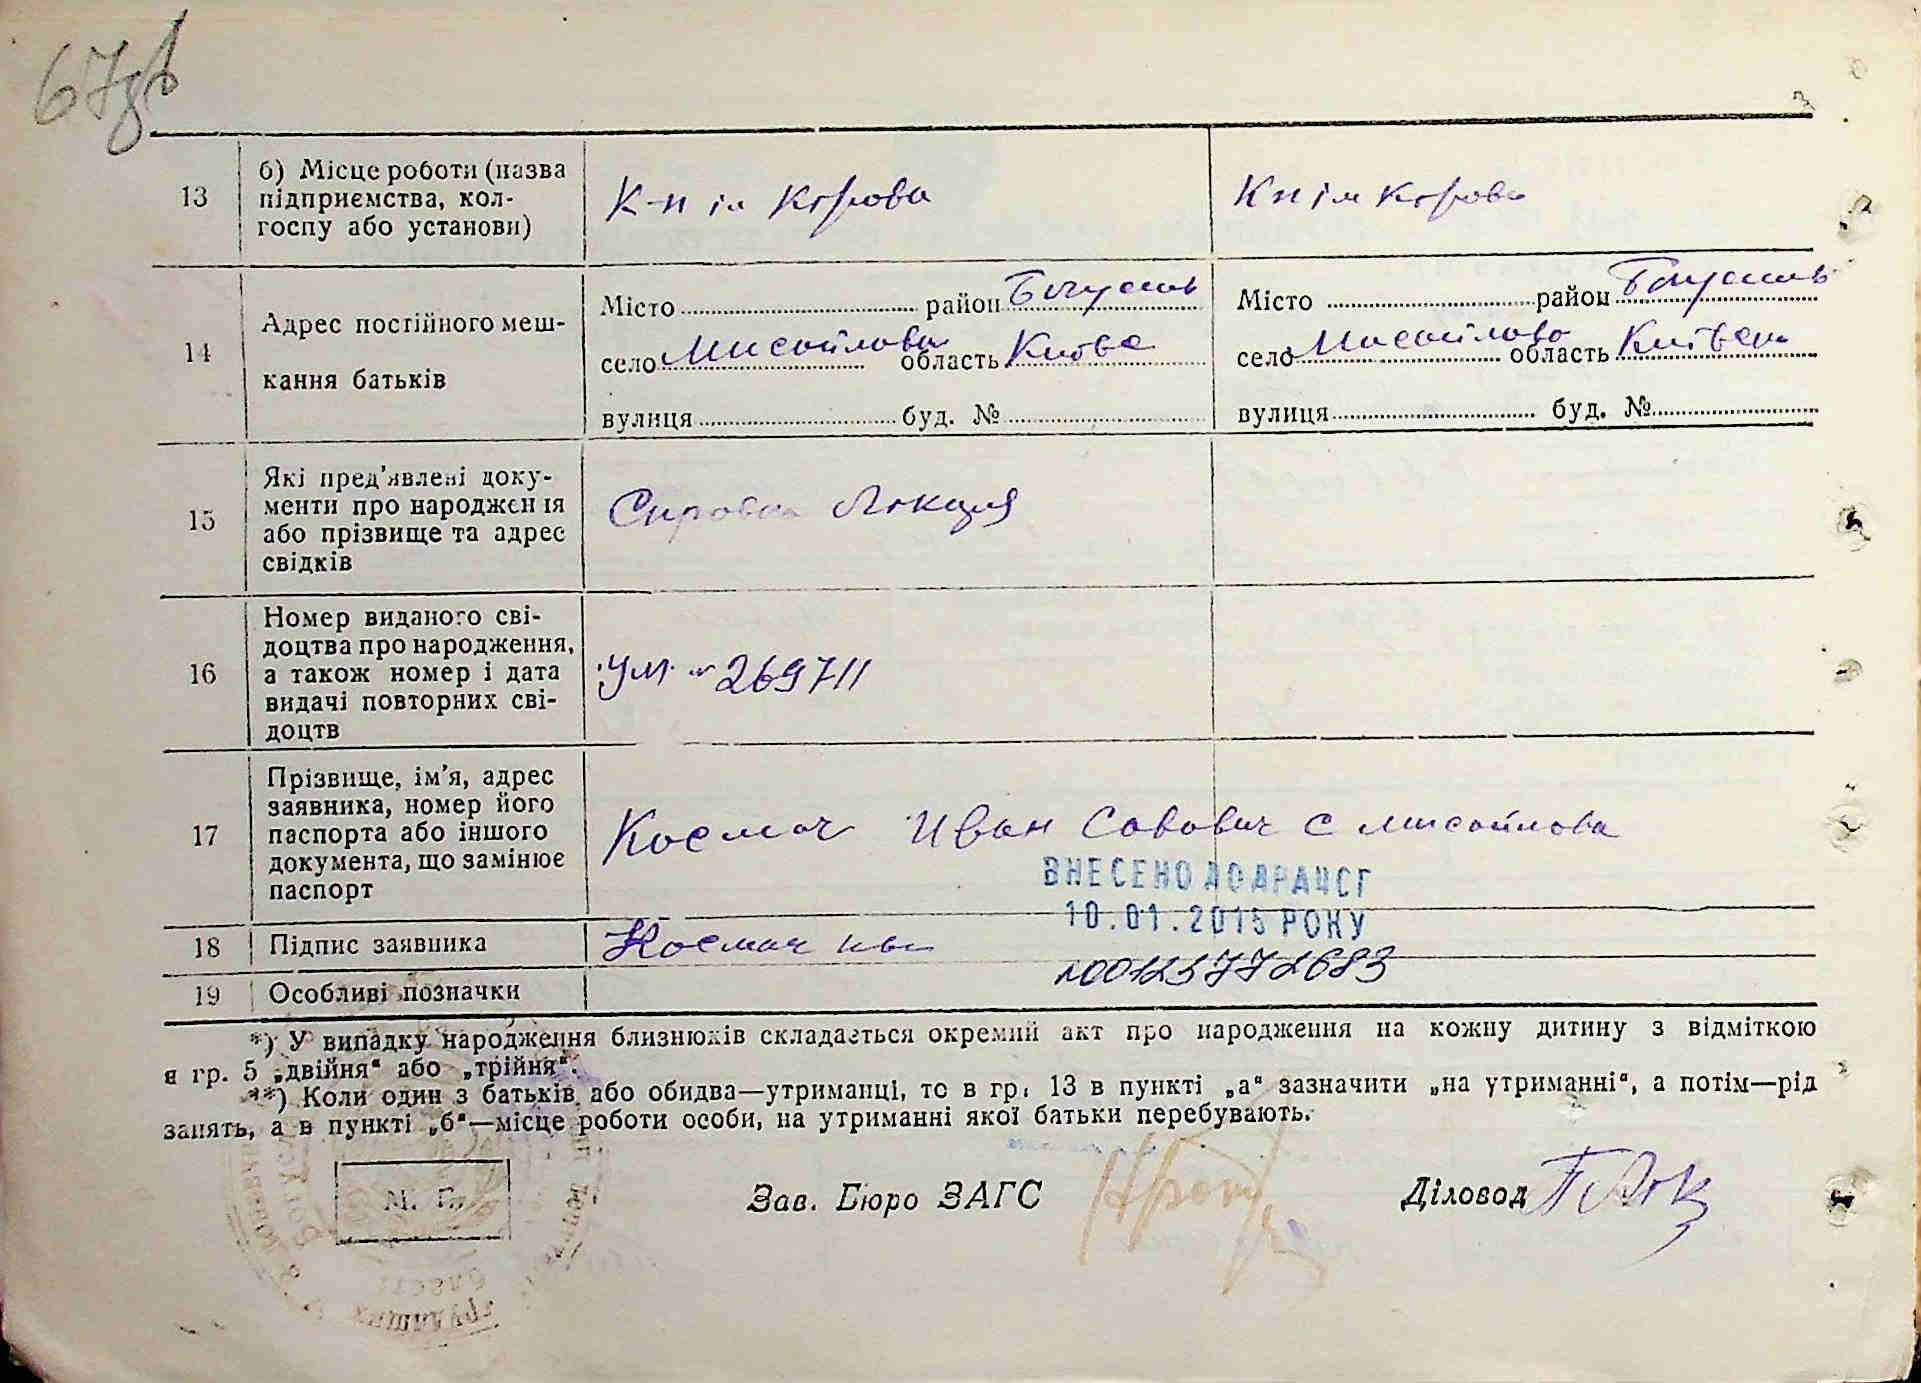 67зв
13
б) Місце роботи (назва
підприємства, кол-
госпу або установи)
К-п ім Кірова
Кп ім Кірова
14
Адрес постійного меш-
кання батьків
Місто район Богуслав
село Мисайлово область Київс
вулиця буд. №
Місто район Богуслав
село Мисайлово область Київськ
вулиця буд. №
15
Які пред'явлені доку-
менти про народження
або прізвище та адрес
свідків
16
Номер виданого сві-
доцтва про народження,
а також номер і дата
видачі повторних сві-
доцтв
УМ № 269711
17
Прізвище, ім'я, адрес
заявника, номер його
паспорта або іншого
документа, що замінює
паспорт
Космач Иван Савович с Мисайлова
ВНЕСЕНО ДО ДРАЦСГ
10.01.2015 РОКУ
18
Підпис заявника
Космач Ив
19
Особливі позначки
*) У випадку народження близнюків складається окремий акт про народження на кожну дитину з відміткою
в гр. 5 „двійня“ або „трійня“.
**) Коли один з батьків або обидва—утриманці, то в гр. 13 в пункті „а“ зазначити „на утриманні“, а потім—рід
занять, а в пункті „б“—місце роботи особи, на утриманні якої батьки перебувають.
М. П.
Зав. Бюро ЗАГС
Діловод